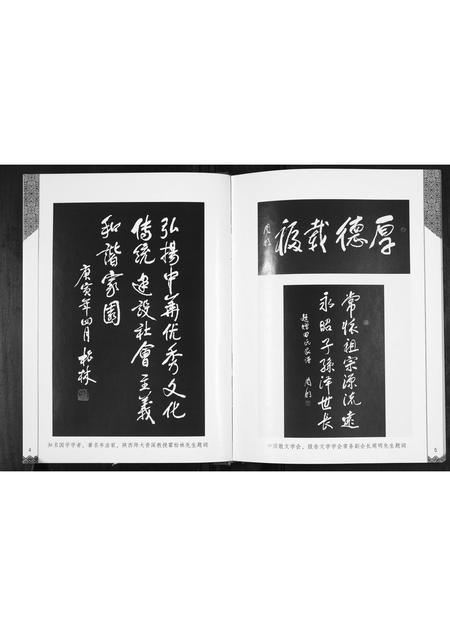 弘揚中華优秀文化
傳統 建設社會主義
和諧家園
庚寅年四月 松林
知名国学学者、著名书法家、陕西师大资深教授霍松林先生题词
4
厚德载福
周明
常懷祖宗源流遠
永昭子孫泽世長
周明
中国散文学会、报告文学学会常务副会长周明先生题词
5